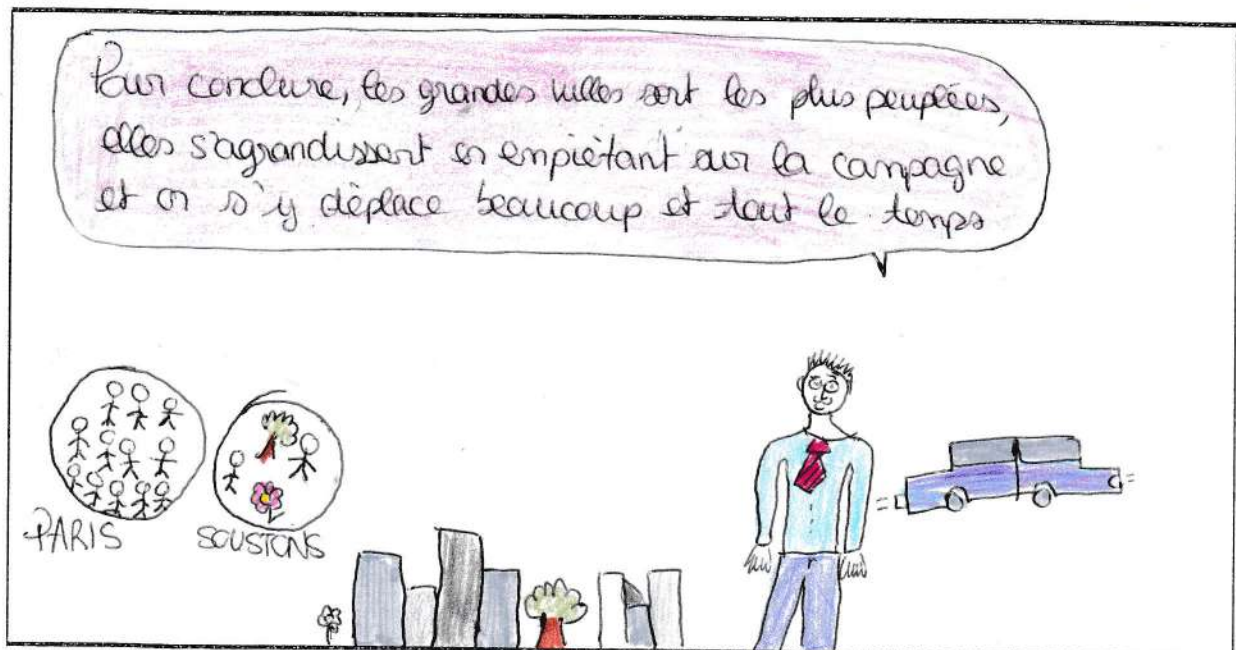 Pour conclure, les grandes villes sont les plus peuplées,
elles s'agrandissent en empiétant sur la campagne
et on s'y déplace beaucoup et tout le temps
PARIS
SOUSTONS